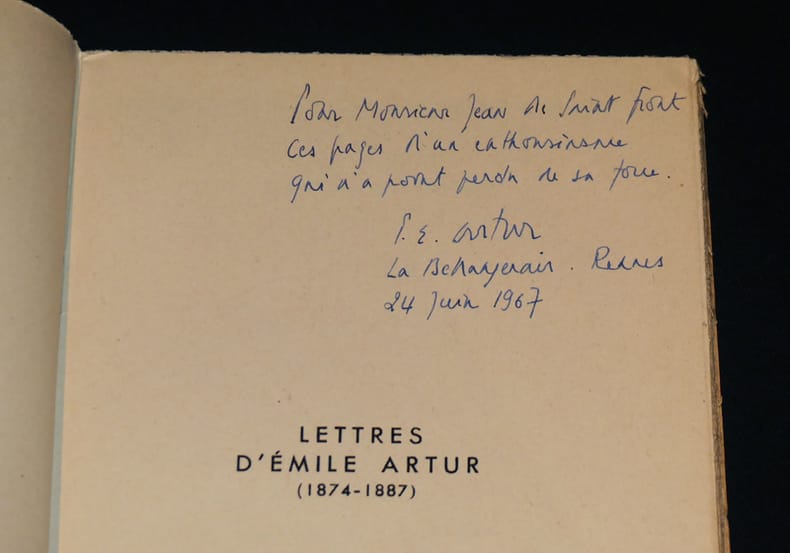 Pour Monsieur Jean de Saint Front
ces pages d'un enthousiasme
qui n'a point perdu de sa force.
P. E. Artur
La Rennes
24 Juin 1967
LETTRES
D'ÉMILE ARTUR
(1874-1887)